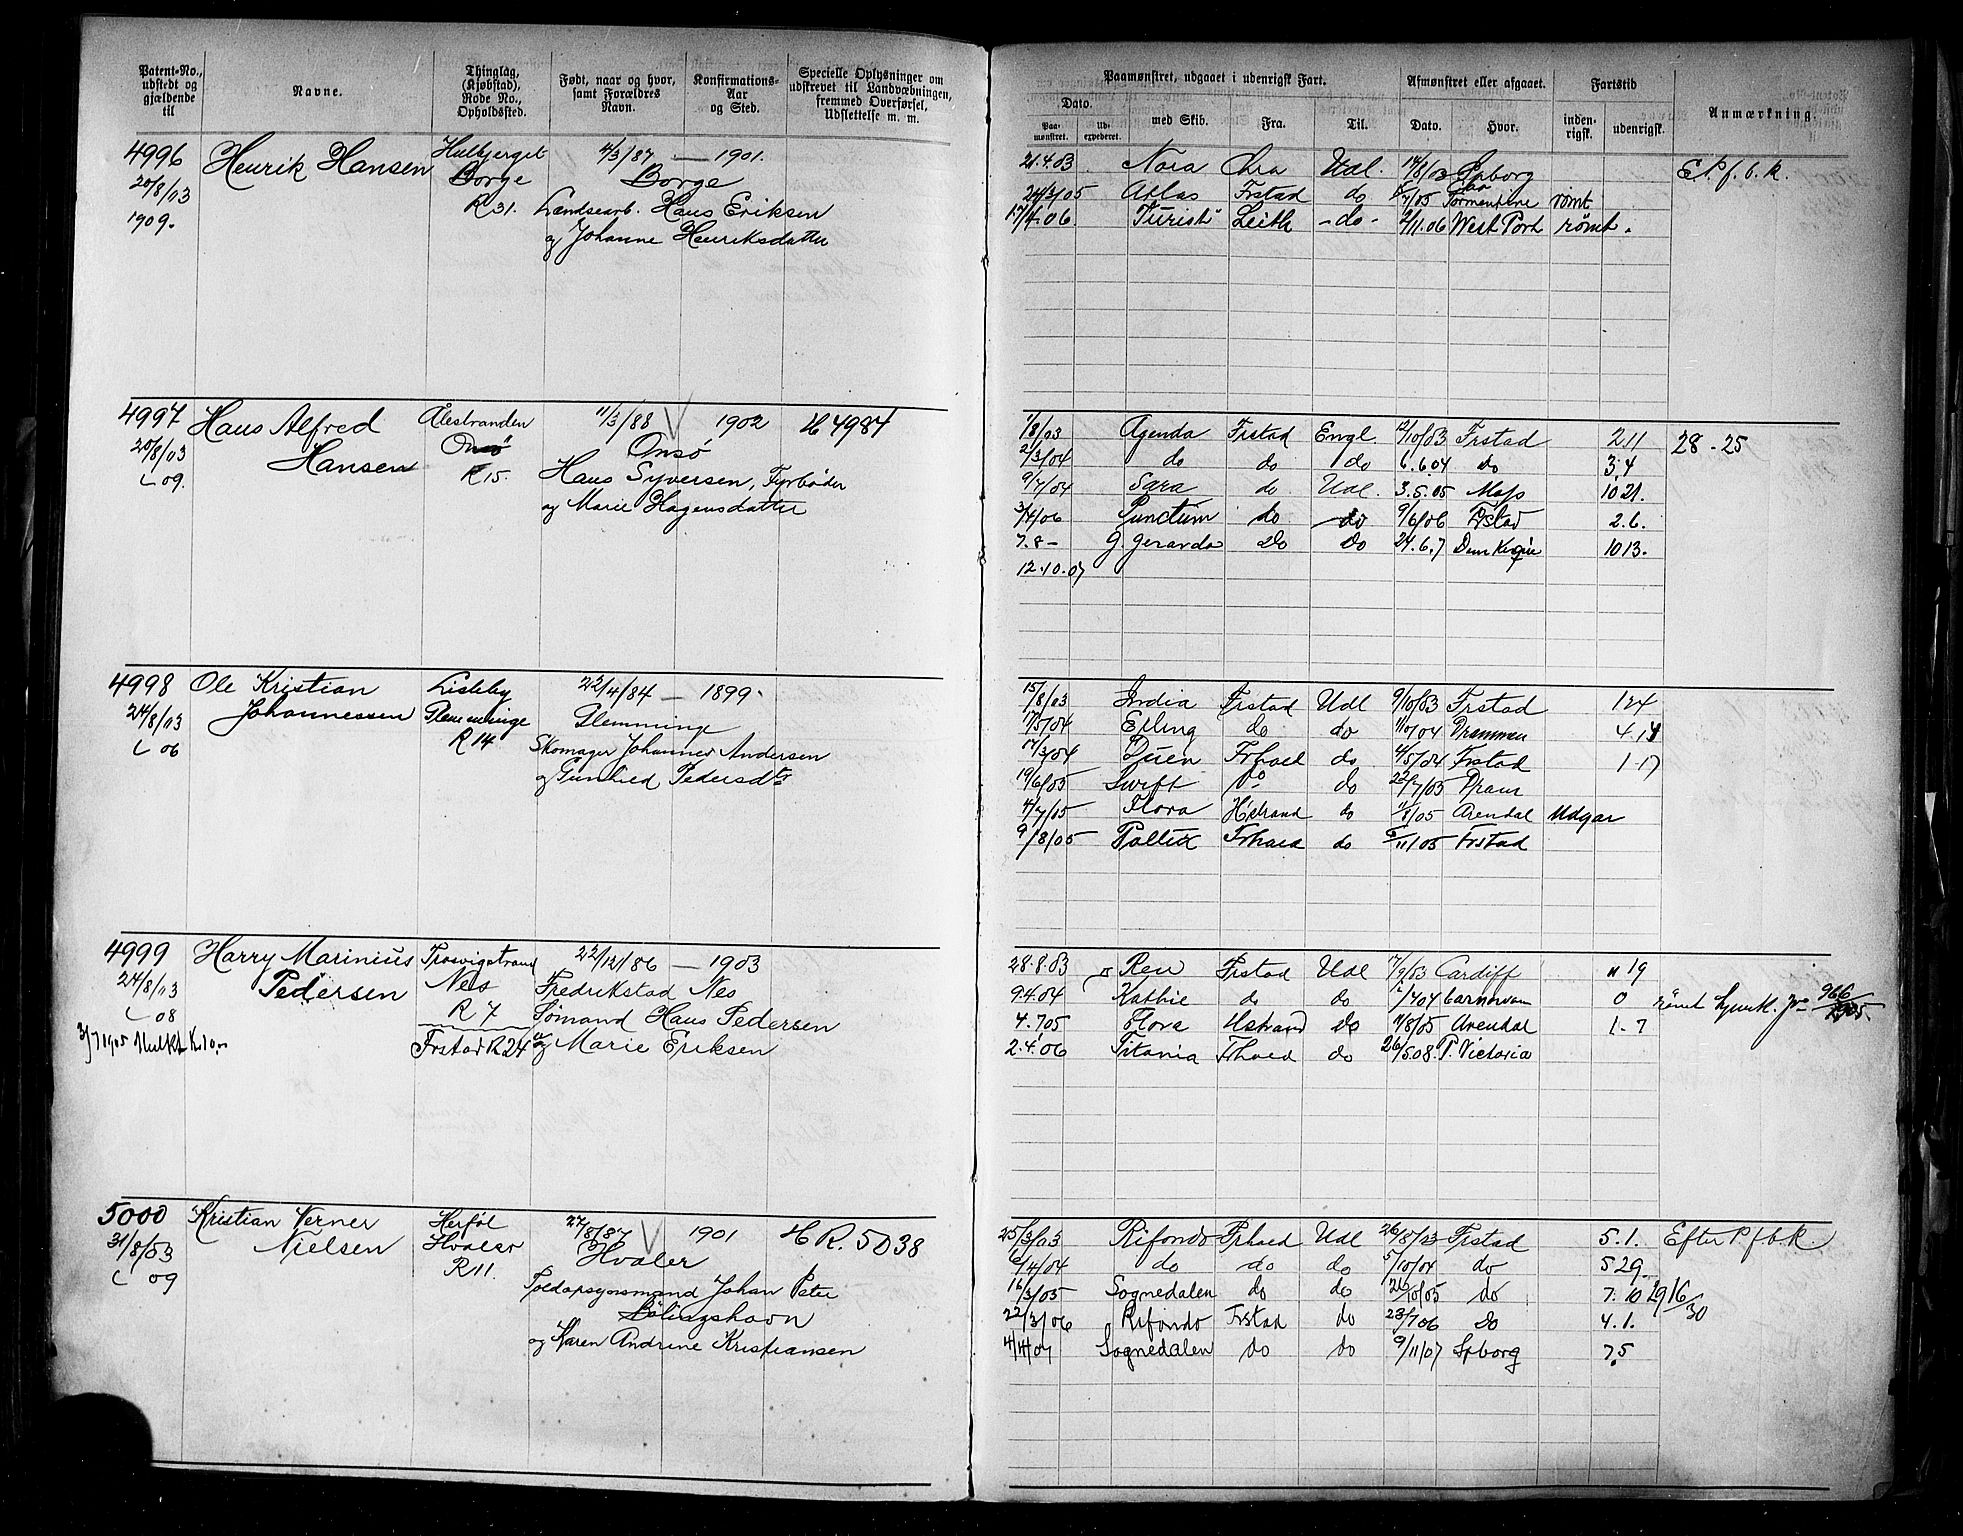 Patent-No., udstedt og gjældende til
Navne.
Thinglag, (Kjøbstad), Rode No., Opholdssted.
Født, naar og hvor, samt Forældres Navn.
Konfirmations-Aar og Sted.
Specielle Oplysninger om udskrevet til Landværbningen, fremmed Overførsel, Udslettelse m. m.
4996 Henrik Hansen
20/8/03
1909.
Borge
R 31.
4/3/87 — 1901.
Borge
Landsearb. Hans Eriksen
og Johanne Henriksdatter
4997 Hans Alfred
Hansen
20/8/03
09.
Ålestranden
Onsö
R 15.
11/3/88 1902
Onsö
Hans Syversen, Fyrbøder
og Marie Hagensdatter
4984
4998 Ole Kristian
Johannessen
24/8/03
06
Lisleby
Glemminge
R 14
22/4/84 — 1899.
Glemminge
Skomager Johannes Andersen
og Gunhild Pedersdtr
4999 Harry Marinius
Pedersen
24/8/03
08
3/7 1905 Mulkt Kr 10,-
Trosvigstrand
Nes
R 7
Frstad R 24
22/12/86 — 1903
Fredrikstad Nes
Sømand Hans Pedersen
og Marie Eriksen
5000 Kristian Verner
Nielsen
31/8/03
09
Herføl
Hvaler
R 11.
27/8/87 1901
Hvaler
Toldopsynsmand Johan Peter
og Karen Andrine Kristiansen
R. 5038
Paamønstret, udgaaet i udenrigsk Fart.
Afmønstret eller afgaaet.
Fartstid
Anmærkning.
Dato.
Paa-mønstret.
Ud-expederet.
med Skib.
Fra.
Til.
Dato.
Hvor.
inden-rigsk.
udenrigsk.
21.4.03 Nora Chra Udl. 14/8/03 Spborg E. P. f. b. k.
24/2/05 Atlas Frstad do rømt
17/4.06. "Turist" Leith - do - 2/11.06 West Port rømt.
1/8/03 Agenda Frstad Engl. 12/10/03 Frstad 2.11 28 - 25
2/3/04 do do do 6.6.04 do 3.4
9/7/04 Sara do Udl. 3.5.05 Moss 10 21.
3/4/06 Punctum do do 9/6/06 Frstad 2.6.
7.8 - G. Gerarda do do 24.6.7 10 13.
12.10.07
15/8/03 India Frstad Udl 9/10/03 Frstad 1 24
Elling do do Drammen
Duen Frhald do 4/5/04 Frstad 1-17
19/6/05 Swift Do do 22/7/05 Dram
4/7/05 Flora Hstrand do 1/8/05 Arendal Udgar
9/8/05 Pollux Frhald do Frstad
28.8.03 Ren Frstad Udl 17/9/03 Cardiff " 19
9.4.04 Kathie do do Carnarvon 0 rømt
4.7.05 Flora Hstrand do 1/8/05 Arendal 1-7
2.4.06 Titania Frhald do 26/5.08. P. Victoria
25/3/03 Rifondo Frhald Udl 26/8/03 Frstad 5.1. Efter P f b k.
16/4/04 do do do 5/10/04 do 5 29.
16/3/05 Sognedalen do do do 7. 10
22/3/06 Rifondo Frstad do 23/7 06 do 4.1.
4/4/07 Sognedalen do do 9/11/07 Spborg 7.5